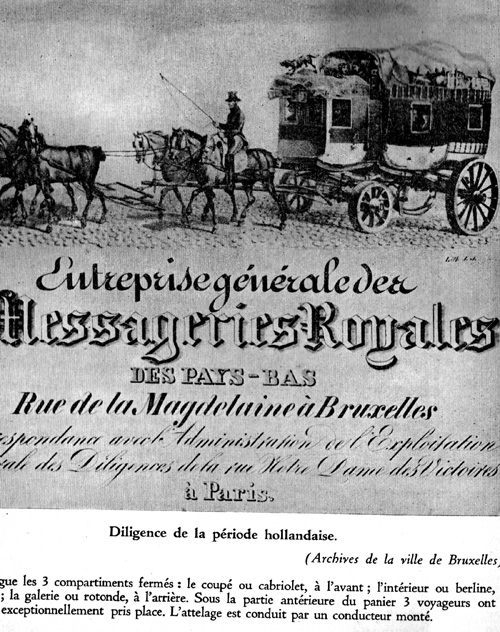 Entreprise générale des
Messageries-Royales
DES PAYS-BAS
Rue de la Magdelaine à Bruxelles
espondance avec l'Administration de l'Exploitation
ale des Diligences de la rue Notre Dame des Victoires
à Paris.
Diligence de la période hollandaise.
(Archives de la ville de Bruxelles)
gue les 3 compartiments fermés : le coupé ou cabriolet, à l'avant ; l'intérieur ou berline,
; la galerie ou rotonde, à l'arrière. Sous la partie antérieure du panier 3 voyageurs ont
exceptionnellement pris place. L'attelage est conduit par un conducteur monté.